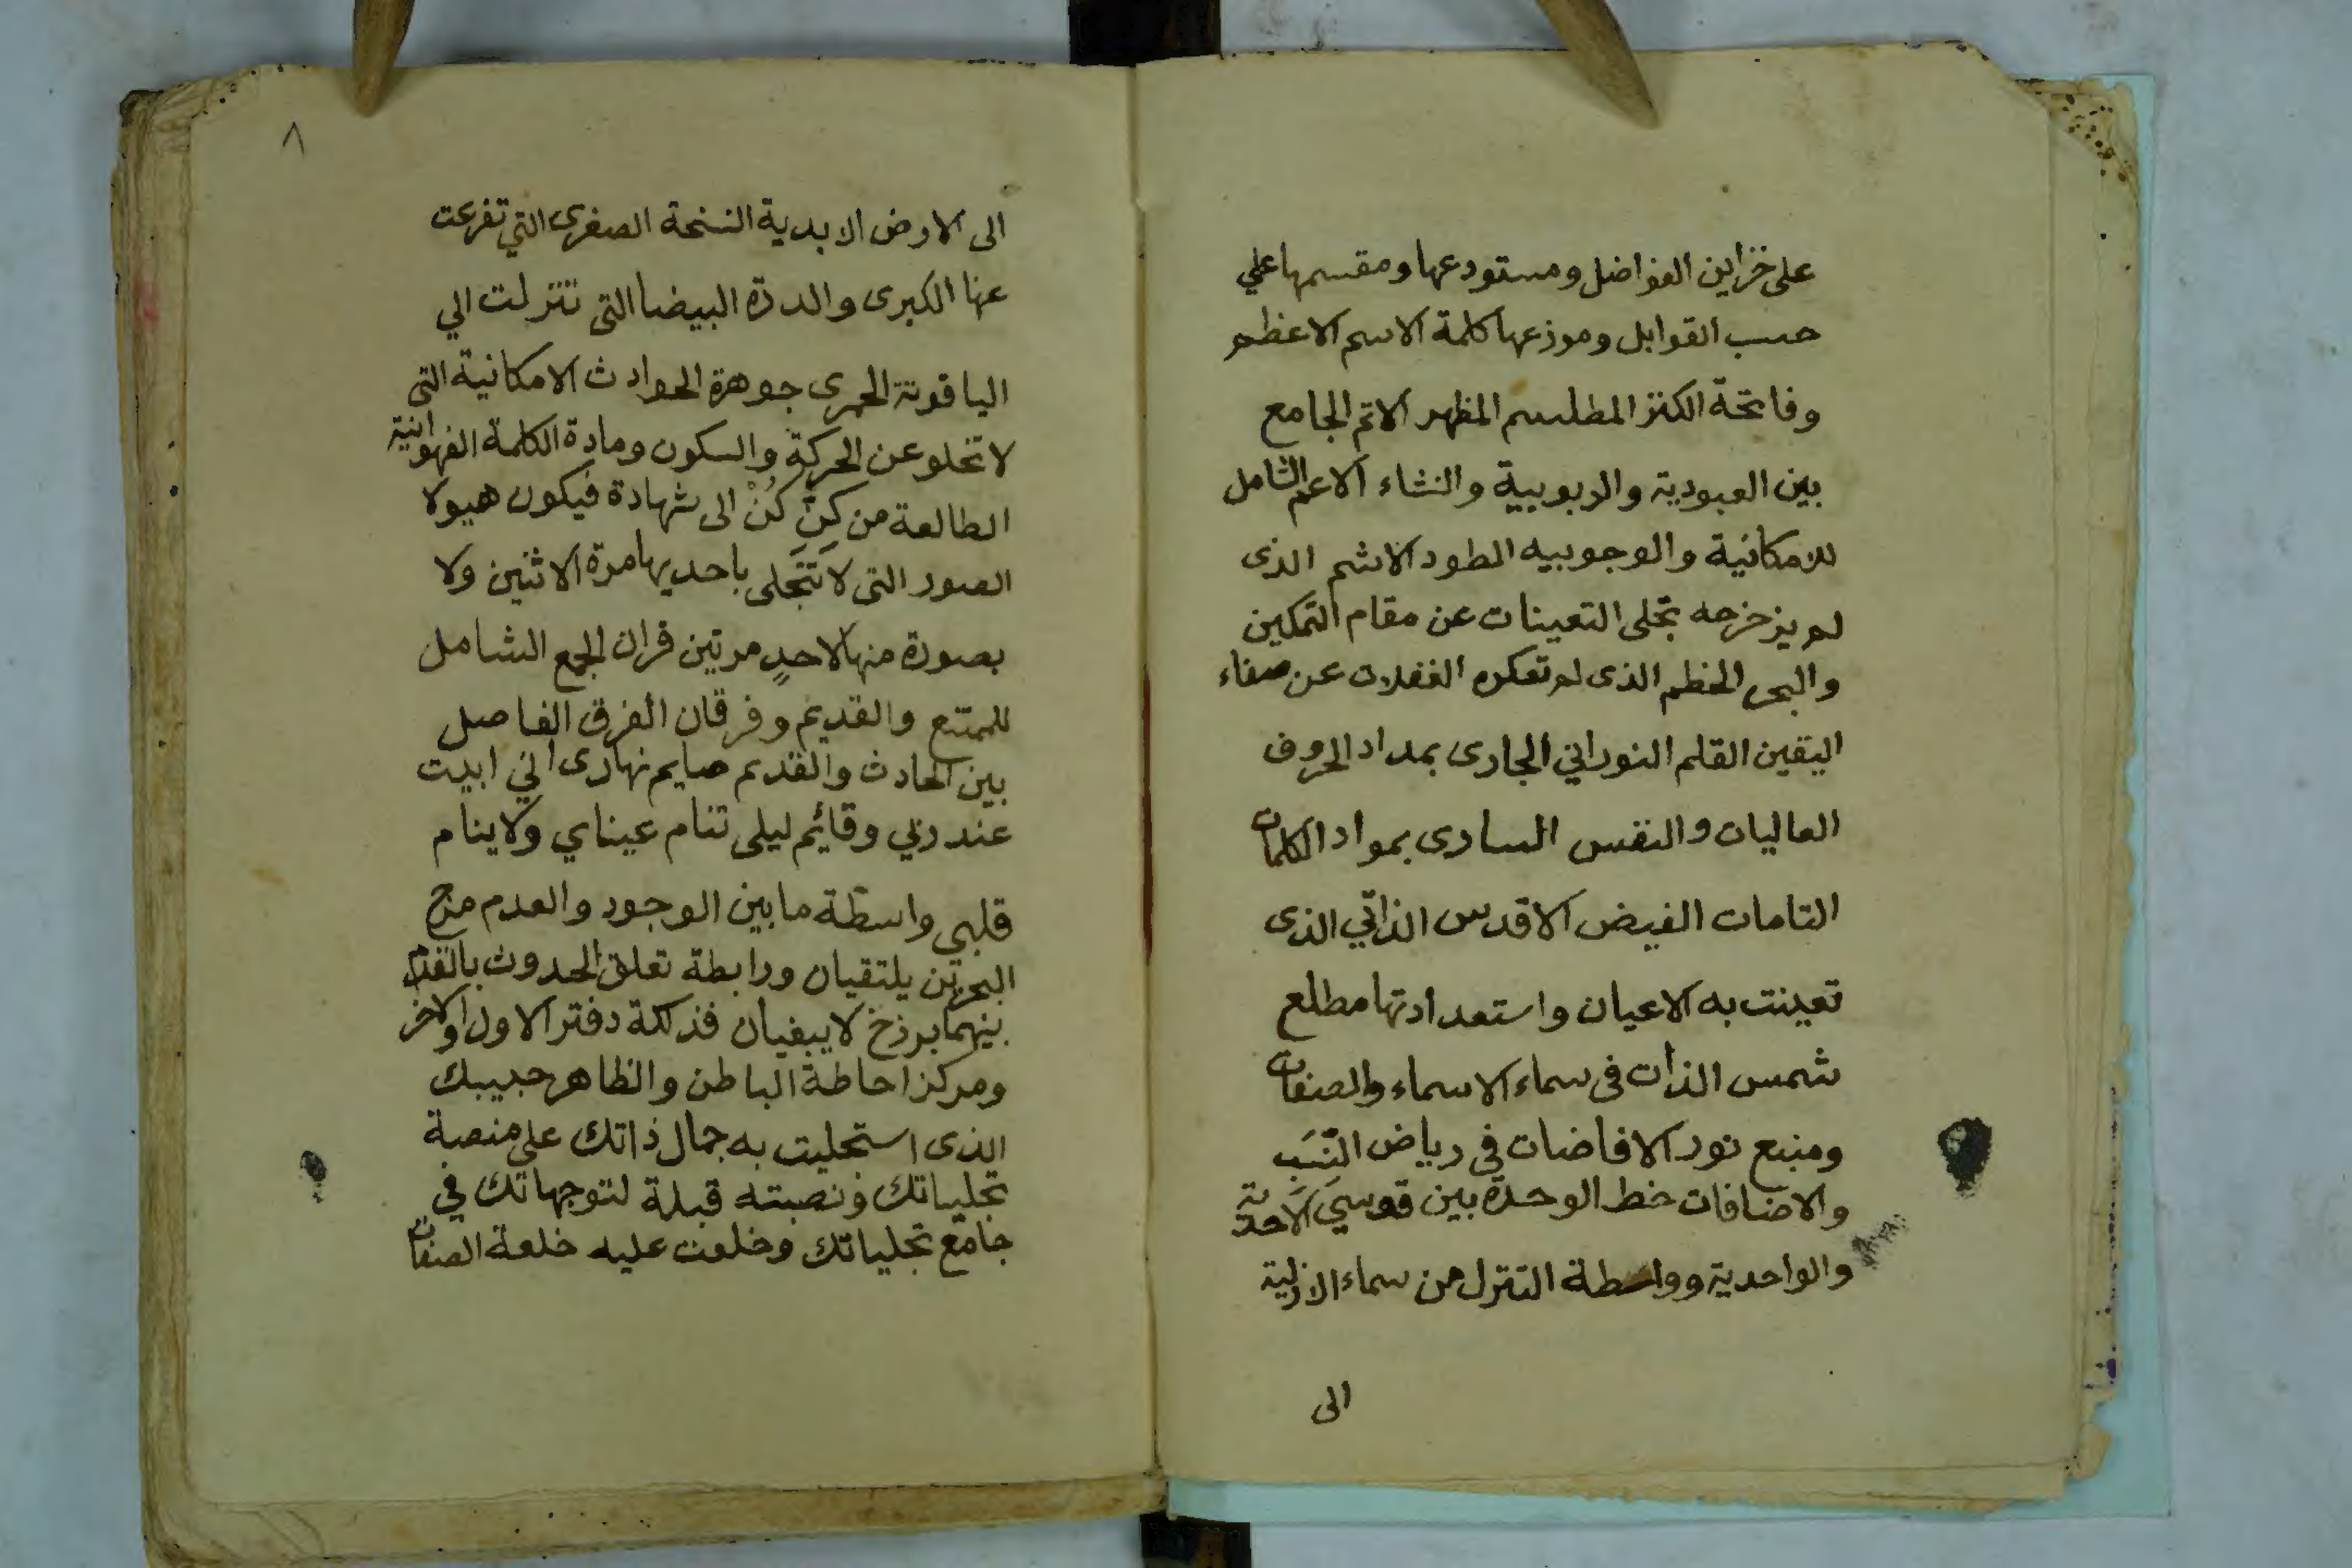 على خزاين الفواضل ومستودعها ومقسمها علي
حسب القوابل وموزعها كلمة الاسم الاعظم
وفاتحة الكنز المطلسم المظهر الاتم الجامع
بين العبودية والربوبية والنشاء الاعم الشامل
للامكانية والوجوبيه الطود الاشم الذى
لم يزحزحه تجلى التعينات عن مقام التمكين
والبحر الخظم الذى لم تعكره الغفلات عن صفاء
اليقين القلم النوراني الجارى بمداد الحروف
العاليات والنفس السارى بمواد الكلمات
التامات الفيض الاقدس الذاتي الذى
تعينت به الاعيان واستعدادتها مطلع
شمس الذات فى سماء الاسماء والصفات
ومنبع نور الافاضات في رياض النّسَب
والاضافات خط الوحدة بين قوسي الاحدية
والواحدية وواسطة التنزل من سماء الازلية
الى
٨
الى الارض الابدية النسخة الصغرى التي تفرعت
عنها الكبرى والدرة البيضا التى تنزلت الي
الياقوتة الحمرى جوهرة الحوادث الامكانية التى
لا تخلو عن الحركة والسكون ومادة الكلمة الفهوانية
الطالعة من كِنِّ كُنْ الى شهادة فيكون هيولا
الصور التى لا تَتَجَلى باحديها مرة الاثنين ولا
بصورة منها لاحدٍ مرتين قران الجمع الشامل
للممتنع والقديم وفرقان الفرق الفاصل
بين الحادث والقديم صايم نهارى اني ابيت
عند ربي وقائم ليلى تنام عيناي ولا ينام
قلبي واسطة ما بين الوجود والعدم مرج
البحرين يلتقيان ورابطة تعلق الحدوث بالقدم
بينهما برزخ لا يبغيان فذلكة دفتر الاول والاخر
ومركز احاطة الباطن والظاهر حبيبك
الذى استجليت به جمال ذاتك على منصة
تجلياتك ونصبته قبلة لتوجهاتك في
جامع تجلياتك وخلعت عليه خلعة الصفات